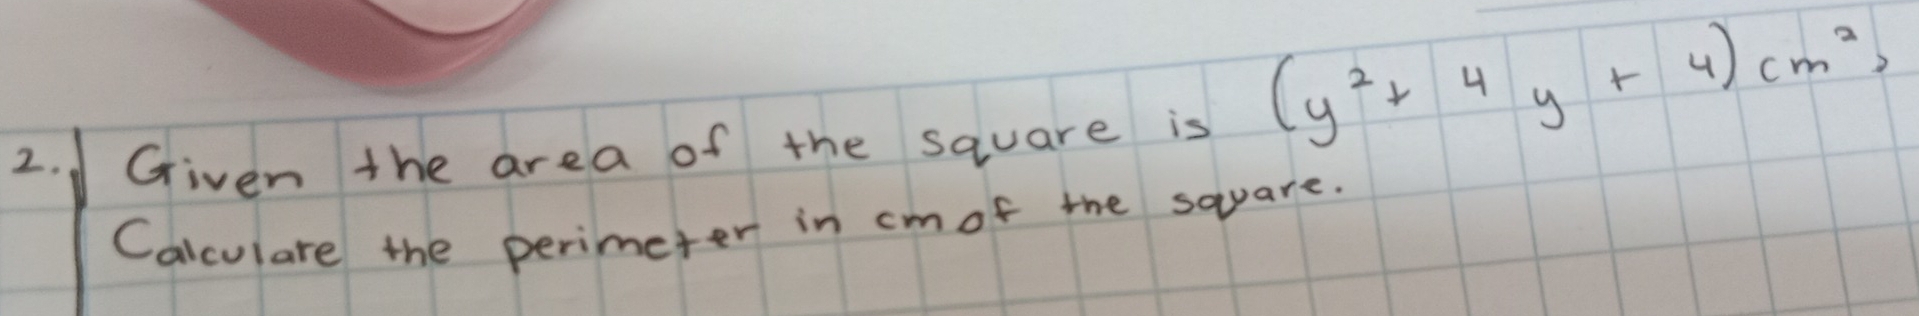 2. Given the area of the square is (y² + 4y + 4) cm²,
Calculate the perimeter in cm of the square.